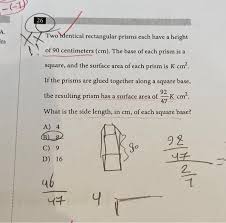 26
Two identical rectangular prisms each have a height
of 90 centimeters (cm). The base of each prism is a
square, and the surface area of each prism is K cm².
If the prisms are glued together along a square base,
the resulting prism has a surface area of 92/47 K cm².
What is the side length, in cm, of each square base?
A) 4
B) 8
C) 9
D) 16
90
92
47
2
46
47
4